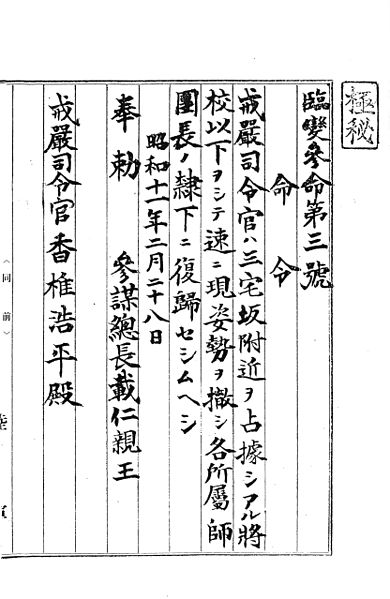 極秘
臨變參命第三號
命令
戒嚴司令官ハ三宅坂附近ヲ占據シアル將
校以下ヲシテ速ニ現姿勢ヲ撤シ各所屬師
團長ノ隷下ニ復歸セシムヘシ
昭和十一年二月二十八日
奉勅 參謀總長載仁親王
戒嚴司令官香椎浩平殿
（同前）
陸